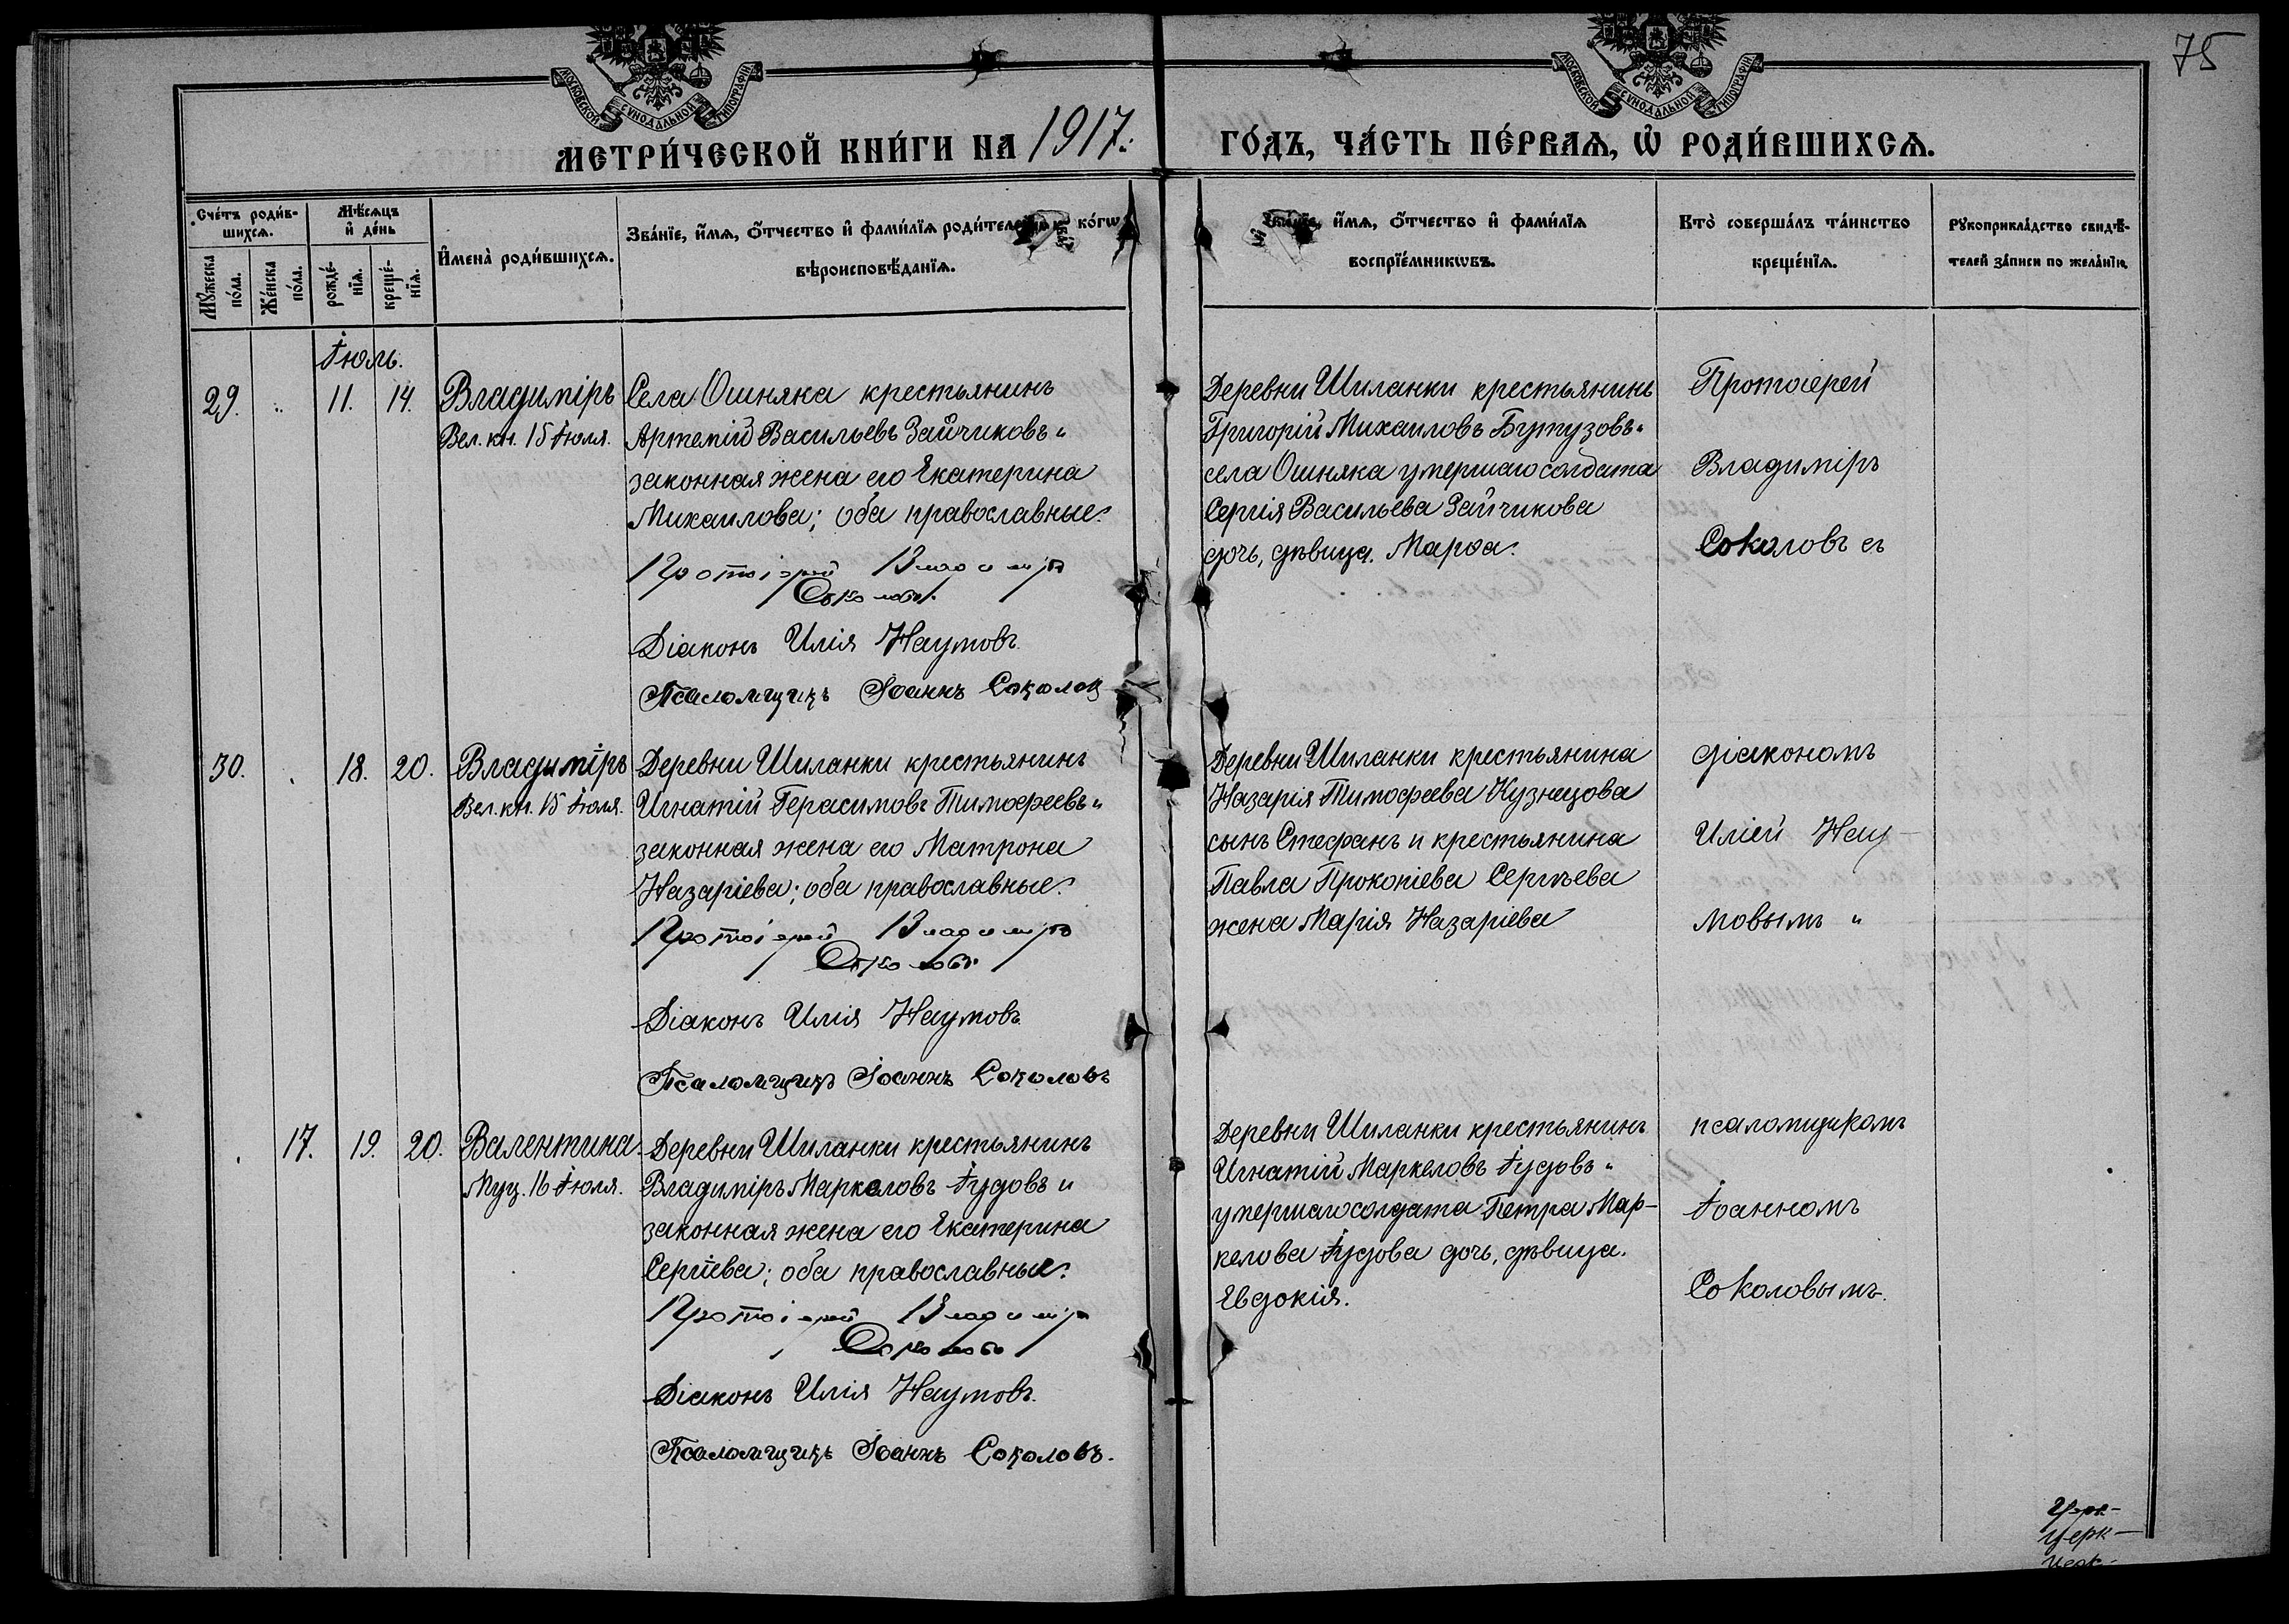 75
МОСКОВСКОЙ СѴНОДАЛЬНОЙ ТИПОГРАФІИ
МОСКОВСКОЙ СѴНОДАЛЬНОЙ ТИПОГРАФІИ
МЕТРИ́ЧЕСКОЙ КНИ́ГИ НА 1917.
ГО́ДЪ, ЧА́СТЬ ПЕ́РВАѦ, Ѡ҆ РОДИ́ВШИХСѦ.
Сче́тъ роди́в-
шихсѧ.
Мꙋ́жеска
по́ла.
Же́нска
по́ла.
Мѣ́сѧцъ
и҆ де́нь
рожде́-
нїѧ.
креще́-
нїѧ.
И҆мена̀ роди́вшихсѧ.
Зва́нїе, и҆́мѧ, ѻ҆́тчество и҆ фами́лїѧ роди́телей, и҆ ко́гѡ
вѣроисповѣ́данїѧ.
Зва́нїе, и҆́мѧ, ѻ҆́тчество и҆ фами́лїѧ
воспрїе́мникѡвъ.
Кто̀ соверша́лъ та́инство
креще́нїѧ.
Рꙋкоприкла́дство свидѣ́-
телей за́писи по жела́нїю.
Іюль.
29. " 11. 14.
Владиміръ
Вел. кн. 15 Іюля.
Села Ошняка крестьянинъ
Артемій Васильевъ Зайчиковъ и
законная жена его Екатерина
Михаилова; оба православные.
Протоіерей Владиміръ
Соколовъ.
Діаконъ Илія Наумовъ.
Псаломщикъ Іоаннъ Соколов
Деревни Шиланки крестьянинъ
Григорій Михаиловъ Бутузовъ и
села Ошняка умершаго солдата
Сергія Васильева Зайчикова
дочь, дѣвица Марѳа.
Протоіерей
Владиміръ
Соколовъ съ
30. . 18. 20.
Владиміръ
Вел. кн. 15 Іюля.
Деревни Шиланки крестьянинъ
Игнатій Герасимовъ Тимофеевъ и
законная жена его Матрона
Назаріева; оба православные.
Протоіерей Владиміръ
Соколовъ
Діаконъ Илія Наумовъ.
Псаломщикъ Іоаннъ Соколовъ
Деревни Шиланки крестьянина
Назарія Тимофеева Кузнецова
сынъ Стефанъ и крестьянина
Павла Прокопіева Сергѣева
жена Марія Назаріева
діакономъ
Иліей Нау-
мовымъ и
. 17. 19. 20.
Валентина.
Муц. 16 Іюля.
Деревни Шиланки крестьянинъ
Владиміръ Маркеловъ Іудовъ и
законная жена его Екатерина
Сергіева; оба православные.
Протоіерей Владиміръ
Соколовъ
Діаконъ Илія Наумовъ.
Псаломщикъ Іоаннъ Соколовъ.
Деревни Шиланки крестьянинъ
Игнатій Маркеловъ Іудовъ и
умершаго солдата Петра Мар-
келова Іудова дочь, дѣвица.
Евдокія.
псаломщикомъ
Іоанномъ
Соколовымъ.
Церк-
Церк-